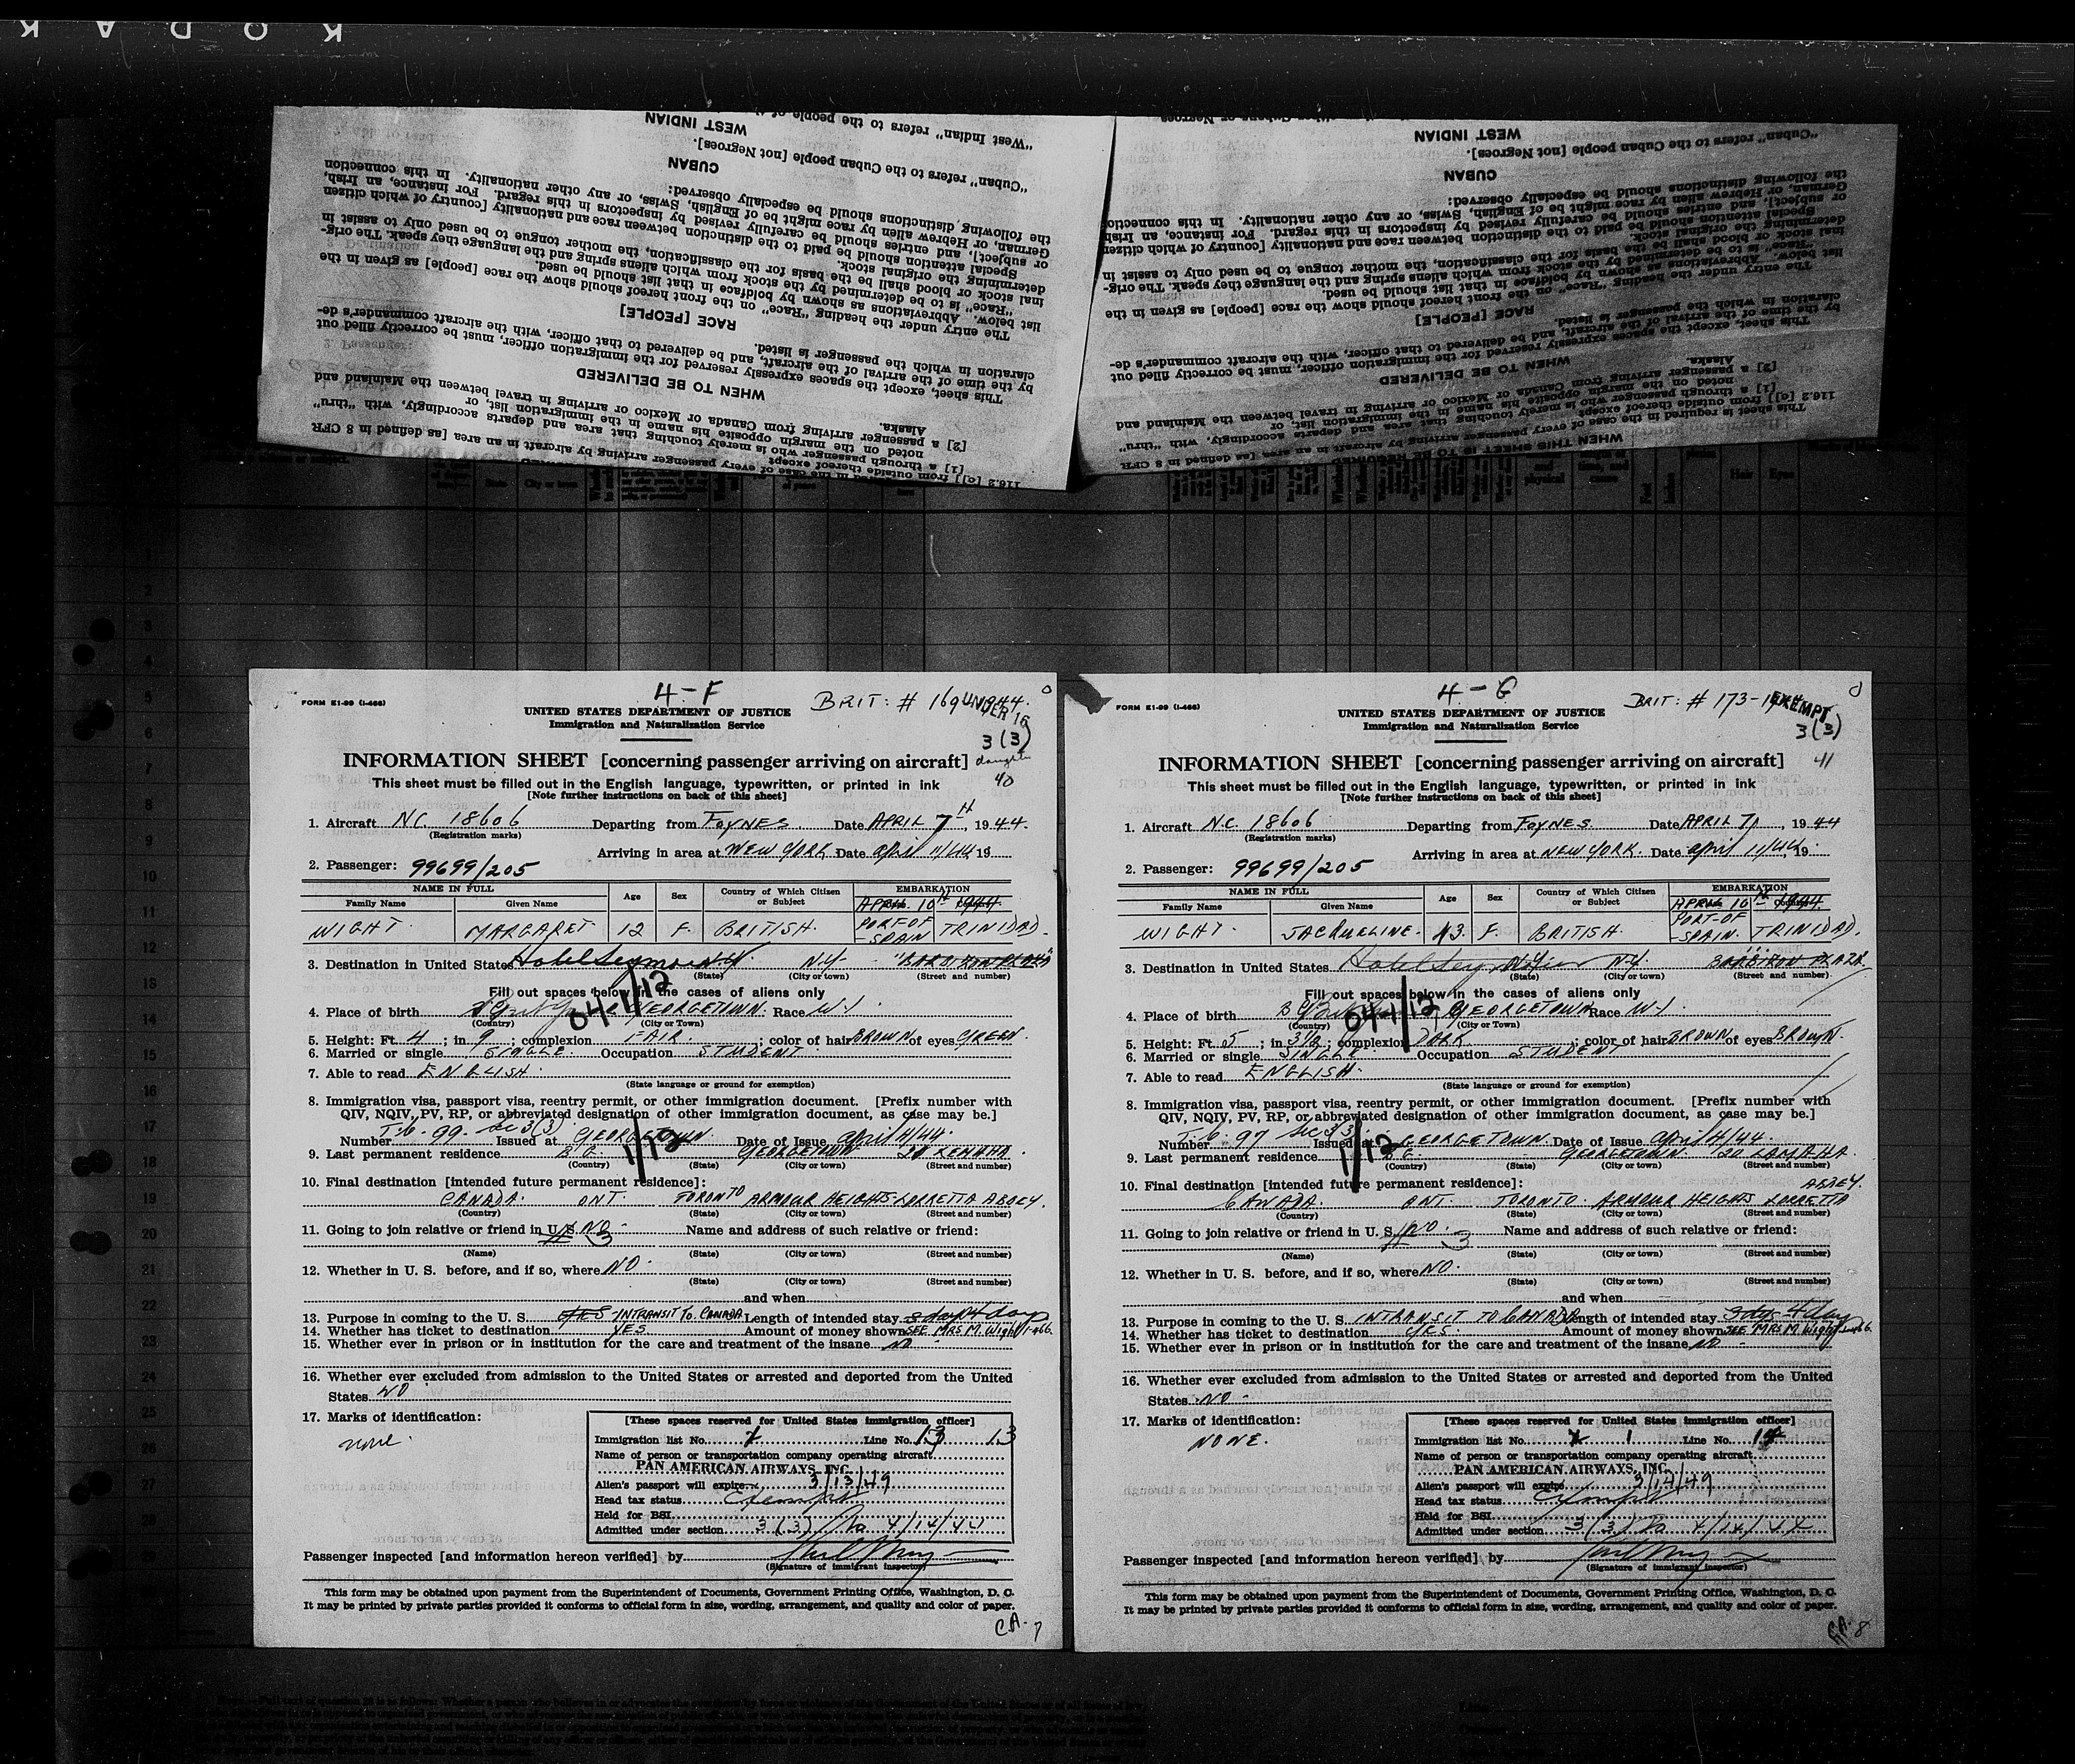 KODAK
"West Indian" refers to the people of
WEST INDIAN
"Cuban" refers to the Cuban people [not Negroes].
CUBAN
the following distinctions should be especially observed:
German, or Hebrew alien by race might be of English, Swiss, or any other nationality. In this connection
or subject], and entries should be carefully revised by inspectors in this regard. For instance, an Irish,
Special attention should be paid to the distinction between race and nationality [country of which citizen
determining the original stock.
inal stock or blood shall be the basis for the classification, the mother tongue to be used only to assist in
"Race" is to be determined by the stock from which aliens spring and the language they speak. The orig-
list below. Abbreviations as shown by boldface in that list should be used.
The entry under the heading "Race" on the front hereof should show the race [people] as given in the
RACE [PEOPLE]
claration in which the passenger is listed.
by the time of the arrival of the aircraft, and be delivered to that officer, with the aircraft commander's de-
This sheet, except the spaces expressly reserved for the immigration officer, must be correctly filled out
WHEN TO BE DELIVERED
Alaska.
[2] a passenger arriving from Canada or Mexico or arriving in travel between the Mainland and
noted on the margin opposite his name in the immigration list, or
[1] a through passenger who is merely touching that area and departs accordingly, with "thru"
116.2 [a]] from outside thereof except
"Cuban" refers to the Cuban people [not Negroes].
WEST INDIAN
CUBAN
the following distinctions should be especially observed:
German, or Hebrew alien by race might be of English, Swiss, or any other nationality. In this connection
or subject], and entries should be carefully revised by inspectors in this regard. For instance, an Irish
Special attention should be paid to the distinction between race and nationality [country of which citizen
determining the original stock.
inal stock or blood shall be the basis for the classification, the mother tongue to be used only to assist in
"Race" is to be determined by the stock from which aliens spring and the language they speak. The orig-
list below. Abbreviations as shown by boldface in that list should be used.
The entry under the heading "Race" on the front hereof should show the race [people] as given in the
RACE [PEOPLE]
claration in which the passenger is listed.
by the time of the arrival of the aircraft, and be delivered to that officer, with the aircraft commander's de-
This sheet, except the spaces expressly reserved for the immigration officer, must be correctly filled out
WHEN TO BE DELIVERED
Alaska.
[2] a passenger arriving from Canada or Mexico or arriving in travel between the Mainland and
noted on the margin opposite his name in the immigration list, or
[1] a through passenger who is merely touching that area and departs accordingly, with "thru"
116.2 [a]] from outside thereof except
This sheet is required in the case of every passenger arriving by aircraft in an area [as defined in 8 CFR
WHEN THIS SHEET IS TO BE REQUIRED
4-F
FORM E1-99 (I-466)
BRIT: # 169
UNITED STATES DEPARTMENT OF JUSTICE
Immigration and Naturalization Service
3(3)
daughter
INFORMATION SHEET [concerning passenger arriving on aircraft]
40
This sheet must be filled out in the English language, typewritten, or printed in ink
[Note further instructions on back of this sheet]
1. Aircraft NC 18606 Departing from FOYNES. Date APRIL 7TH, 1944.
(Registration marks)
Arriving in area at NEW YORK Date April 11/44 19
2. Passenger: 99699/205
NAME IN FULL Age Sex Country of Which Citizen or Subject EMBARKATION
Family Name Given Name APRIL 10TH 1944
WIGHT. MARGARET. 12 F. BRITISH. PORT-OF-SPAIN TRINIDAD.
3. Destination in United States Hotel Seymour N.Y.
(State) (City or town) (Street and number)
Fill out spaces below in the cases of aliens only
4. Place of birth GEORGETOWN. Race W.I.
(Country) (City or Town)
041/12
5. Height: Ft. 4; in 9; complexion FAIR.; color of hair BROWN of eyes GREEN.
6. Married or single SINGLE. Occupation STUDENT.
7. Able to read ENGLISH.
(State language or ground for exemption)
8. Immigration visa, passport visa, reentry permit, or other immigration document. [Prefix number with
QIV, NQIV, PV, RP, or abbreviated designation of other immigration document, as case may be.]
Number Sec 3(3) Issued at GEORGETOWN Date of Issue April 4/44.
1/12
9. Last permanent residence B.G. GEORGETOWN
(Country) (State) (City or town) (Street and number)
10. Final destination [intended future permanent residence]:
CANADA. ONT. TORONTO ARMOUR HEIGHTS-LORRETTA ABBEY.
(Country) (State) (City or town) (Street and number)
11. Going to join relative or friend in U. S. NO 3 Name and address of such relative or friend:
(Name) (State) (City or town) (Street and number)
12. Whether in U. S. before, and if so, where NO.
(State) (City or town) (Street and number)
and when
13. Purpose in coming to the U. S. YES-INTRANSIT TO CANADA Length of intended stay 3 days 4 days
14. Whether has ticket to destination YES Amount of money shown SEE MRS M. Wight I-466.
15. Whether ever in prison or in institution for the care and treatment of the insane NO
16. Whether ever excluded from admission to the United States or arrested and deported from the United
States NO
17. Marks of identification:
none.
[These spaces reserved for United States immigration officer]
Immigration list No. Line No. 13 13
Name of person or transportation company operating aircraft
PAN AMERICAN AIRWAYS, INC.
Alien's passport will expire 3/13/49
Head tax status Exempt
Held for BSI
Admitted under section 3(3) To 4/14/44
Passenger inspected [and information hereon verified] by
(Signature of immigrant inspector)
This form may be obtained upon payment from the Superintendent of Documents, Government Printing Office, Washington, D. C.
It may be printed by private parties provided it conforms to official form in size, wording, arrangement, and quality and color of paper.
C.A. 7
4-G
FORM E1-99 (I-466)
BRIT: # 173-
EXEMPT
UNITED STATES DEPARTMENT OF JUSTICE
Immigration and Naturalization Service
3(3)
INFORMATION SHEET [concerning passenger arriving on aircraft]
41
This sheet must be filled out in the English language, typewritten, or printed in ink
[Note further instructions on back of this sheet]
1. Aircraft N.C. 18606 Departing from FOYNES. Date APRIL 7, 1944
(Registration marks)
Arriving in area at NEW YORK. Date April 11/44, 19
2. Passenger: 99699/205
NAME IN FULL Age Sex Country of Which Citizen or Subject EMBARKATION
Family Name Given Name APRIL 10TH 1944.
WIGHT. JACQUELINE. 13 F. BRITISH. PORT-OF-SPAIN. TRINIDAD.
3. Destination in United States Hotel Seymour N.Y. BARBIZON PLAZA
(State) (City or town) (Street and number)
Fill out spaces below in the cases of aliens only
4. Place of birth GEORGETOWN Race W.I.
(Country) (City or Town)
041/12
5. Height: Ft. 5; in 3 1/2; complexion DARK; color of hair BROWN of eyes BROWN.
6. Married or single SINGLE. Occupation STUDENT
7. Able to read ENGLISH.
(State language or ground for exemption)
8. Immigration visa, passport visa, reentry permit, or other immigration document. [Prefix number with
QIV, NQIV, PV, RP, or abbreviated designation of other immigration document, as case may be.]
Number Sec 3(3) Issued at GEORGETOWN. Date of Issue April 4/44.
1/12
9. Last permanent residence B.G. GEORGETOWN. 120 LAMAHA.
(Country) (State) (City or town) (Street and number)
10. Final destination [intended future permanent residence]: ABBEY.
CANADA. ONT. TORONTO. ARMOUR HEIGHTS LORRETTA
(Country) (State) (City or town) (Street and number)
11. Going to join relative or friend in U. S. NO. 3 Name and address of such relative or friend:
(Name) (State) (City or town) (Street and number)
12. Whether in U. S. before, and if so, where NO.
(State) (City or town) (Street and number)
and when
13. Purpose in coming to the U. S. INTRANSIT TO CANADA Length of intended stay 3 dys 4 days
14. Whether has ticket to destination YES. Amount of money shown SEE MRS M. Wight I-466.
15. Whether ever in prison or in institution for the care and treatment of the insane NO
16. Whether ever excluded from admission to the United States or arrested and deported from the United
States NO-
17. Marks of identification:
NONE.
[These spaces reserved for United States immigration officer]
Immigration list No. 1 Line No. 14
Name of person or transportation company operating aircraft
PAN AMERICAN AIRWAYS, INC.
Alien's passport will expire 3/14/49
Head tax status Exempt
Held for BSI
Admitted under section 3(3) To 4/14/44
Passenger inspected [and information hereon verified] by
(Signature of immigrant inspector)
This form may be obtained upon payment from the Superintendent of Documents, Government Printing Office, Washington, D. C.
It may be printed by private parties provided it conforms to official form in size, wording, arrangement, and quality and color of paper.
C.A. 8